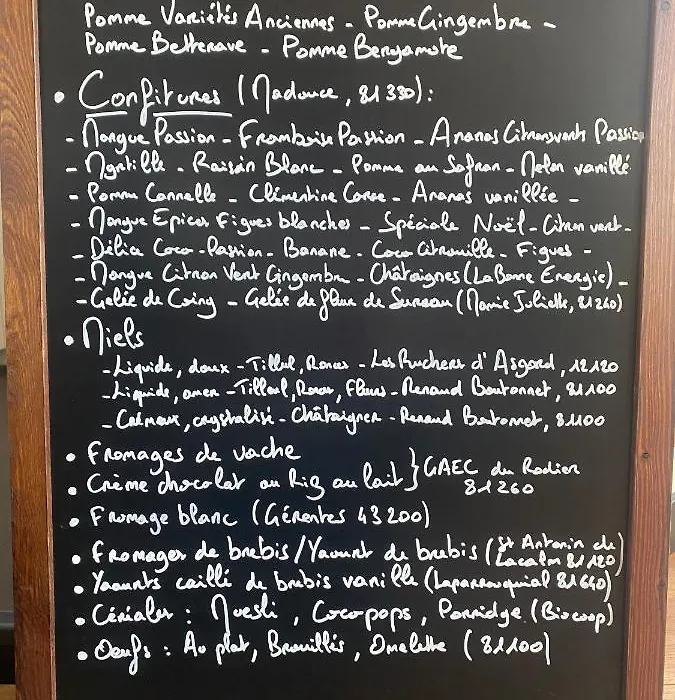 Pomme Variétés Anciennes - Pomme Gingembre -
Pomme Betterave - Pomme Bergamote
• Confitures (Nadouce, 81330):
- Mangue Passion - Framboise Passion - Ananas Citronsverts Passion
- Myrtille - Raisin Blanc - Pomme au Safran - Melon vanillé
- Pomme Cannelle - Clémentine Corse - Ananas vanillée -
- Mangue Epices Figues blanches - Spéciale Noël - Citron vert -
- Délice Coco-Passion - Banane - Coco Citrouille - Figues -
- Mangue Citron Vert Gingembre - Châtaignes (La Bonne Energie) -
- Gelée de Coing - Gelée de fleur de Sureau (Mamie Juliette, 81260)
• Miels
- Liquide, doux - Tilleul, Ronces - Les Ruchers d'Asgard, 12120
- Liquide, amer - Tilleul, Ronces, Fleurs - Renaud Boutonnet, 81100
- Crémeux, crystalisé - Châtaignier - Renaud Boutonnet, 81100
• Fromages de vache
• Crème chocolat ou Riz au lait } GAEC du Rodier
81260
• Fromage blanc (Gérentes 43200)
• Fromages de brebis/Yaourt de brebis (St Antonin de
Lacalm 81120)
• Yaourts caillé de brebis vanille (Laparrouquial 81640)
• Céréales : Muesli, Cocopops, Porridge (Biocoop)
• Oeufs : Au plat, Brouillés, Omelette (81100)